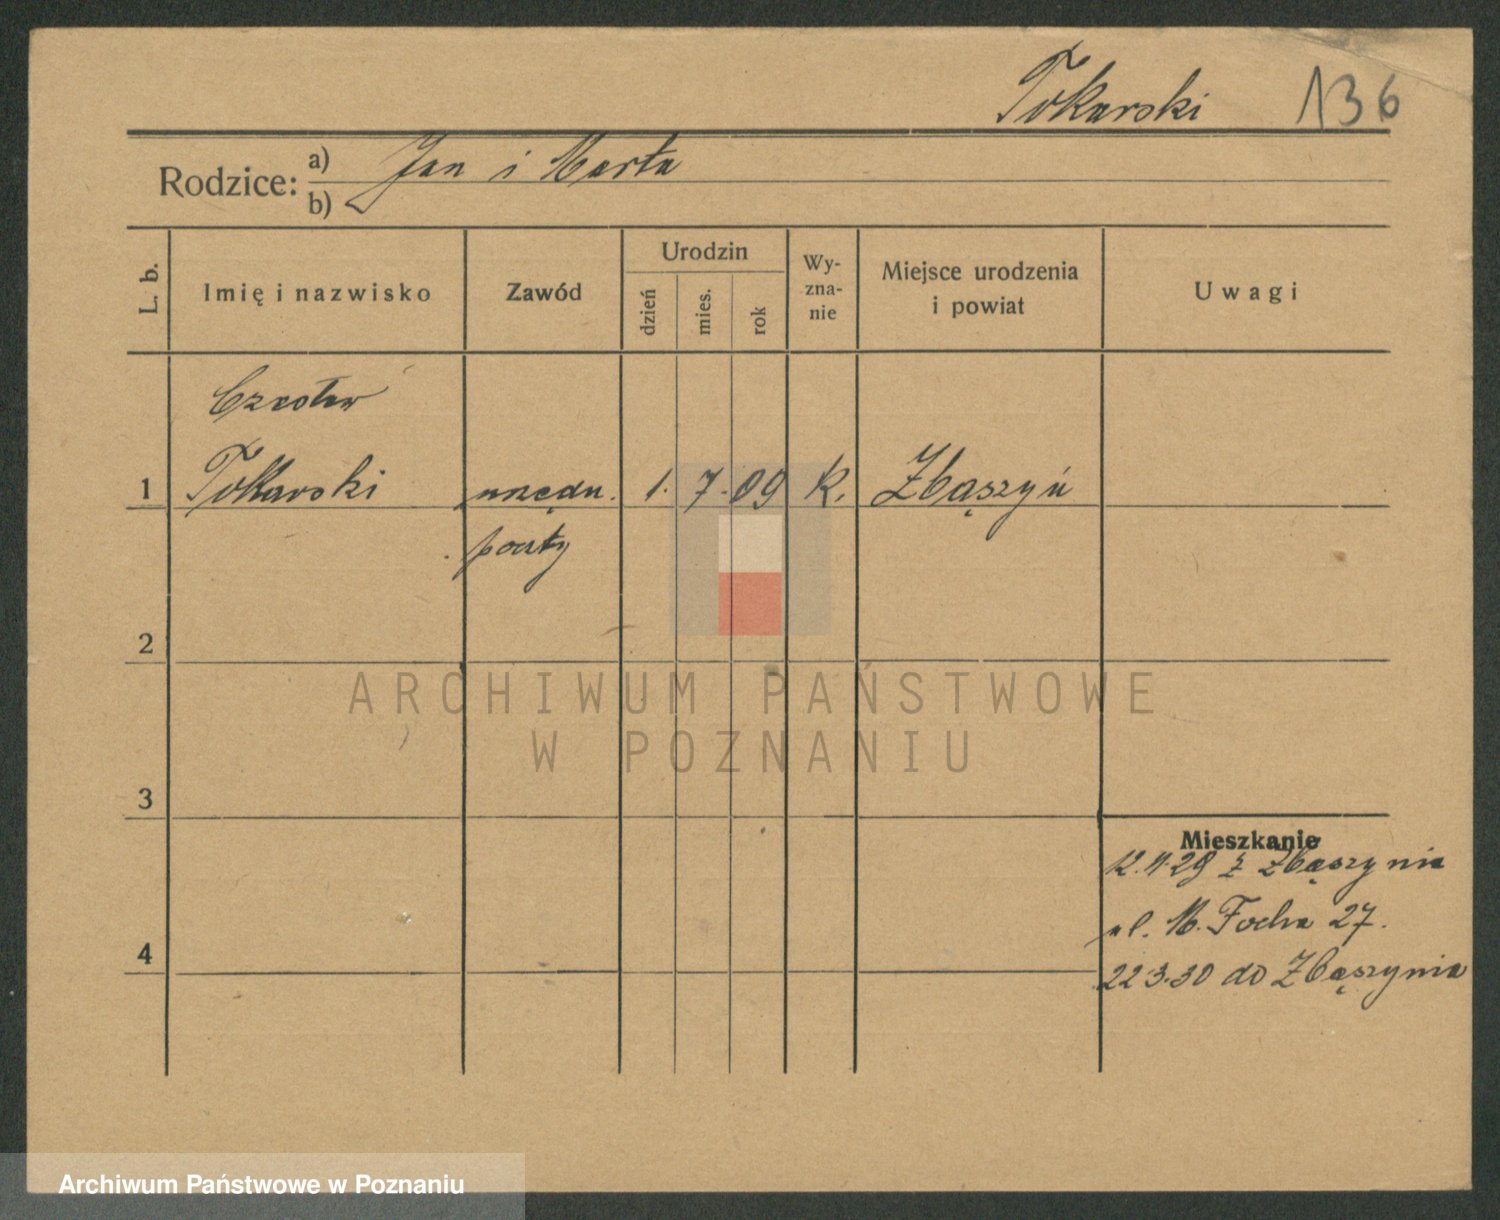 Tokarski 136
Rodzice: a) Jan i Marta
b)
L. b. Imię i nazwisko Zawód Urodzin dzień mies. rok Wy-zna-nie Miejsce urodzenia i powiat Uwagi
Czesław
1 Tokarski urzędn. 1. 7. 09 k. Zbąszyń
poczty
2
ARCHIWUM PAŃSTWOWE
W POZNANIU
3
Mieszkanie
12.4.29 z Zbąszynia
ul. M. Focha 27.
4
22.3.30 do Zbąszynia
Archiwum Państwowe w Poznaniu